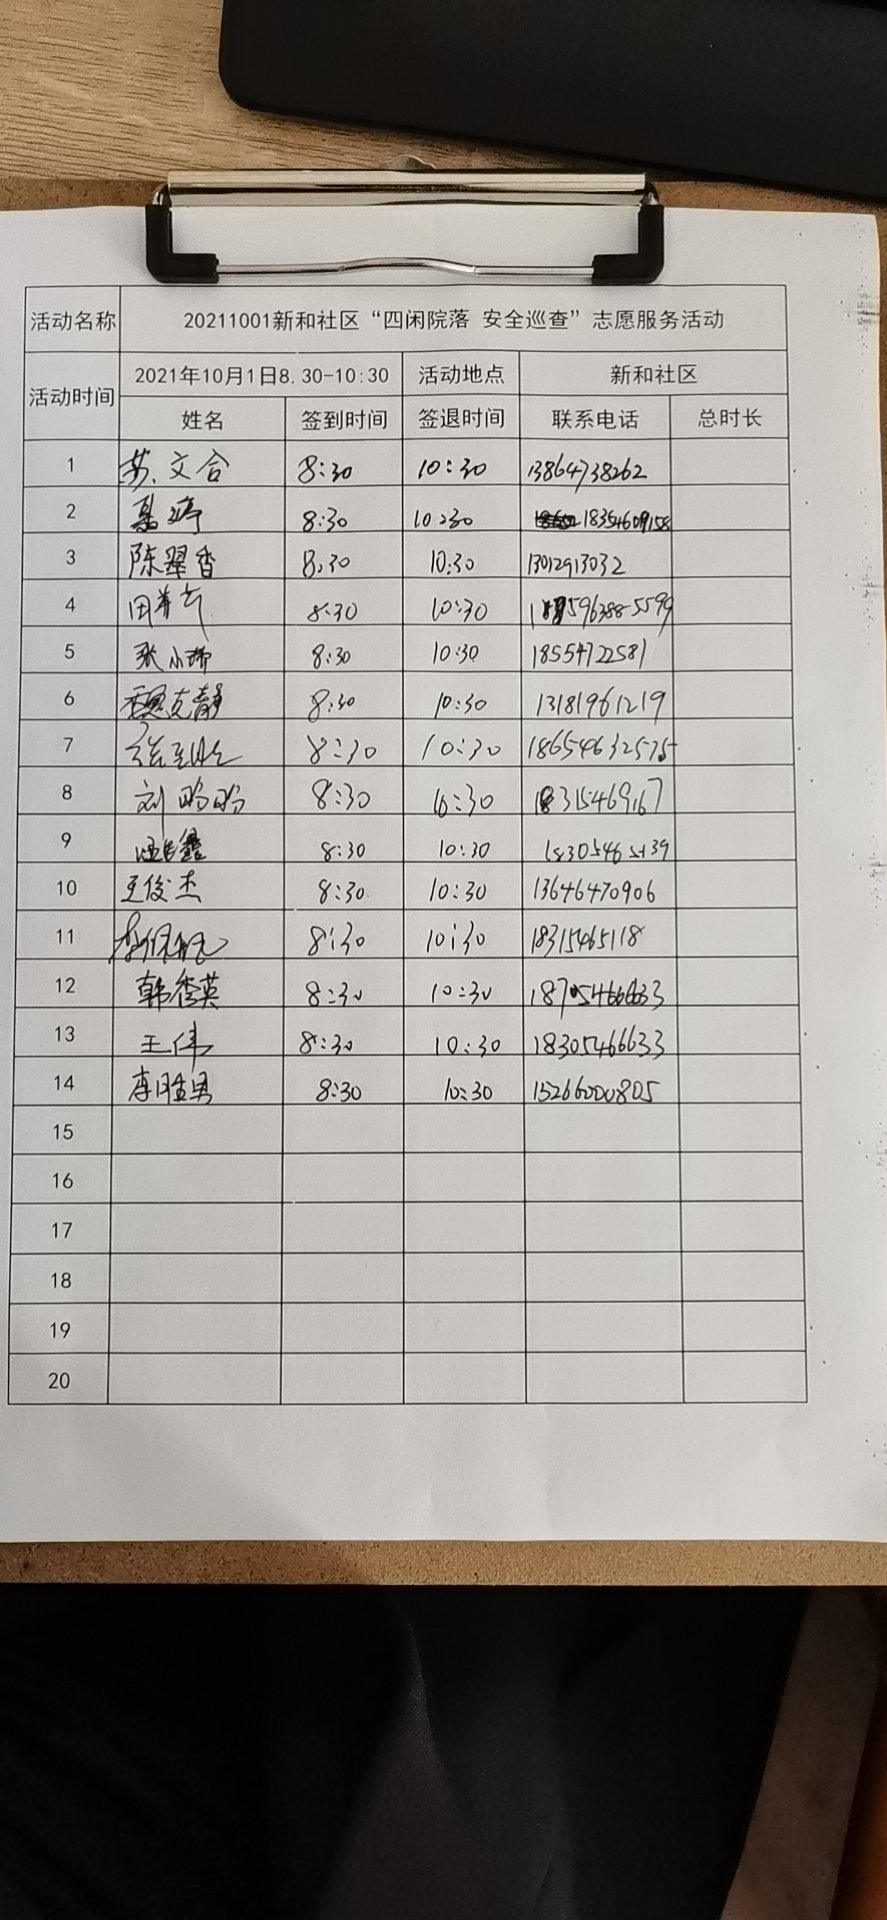 活动名称 20211001新和社区“四闲院落 安全巡查”志愿服务活动
活动时间 2021年10月1日8.30-10:30 活动地点 新和社区
姓名 签到时间 签退时间 联系电话 总时长
1 苏文合 8:30 10:30 13864738262
2 8:30 10:30 18354609158
3 陈翠香 8:30 10:30 13012913032
4 8:30 10:30
5 张小瑞 8:30 10:30 18554722581
6 魏克静 8:30 10:30 13181961219
7 8:30 10:30 18654632575
8 刘晗晗 8:30 10:30
9 8:30 10:30
10 王俊杰 8:30 10:30 13646470906
11 8:30 10:30 18315465118
12 韩秀英 8:30 10:30 18705466633
13 王伟 8:30 10:30 18305466633
14 李胜男 8:30 10:30 15266000805
15
16
17
18
19
20